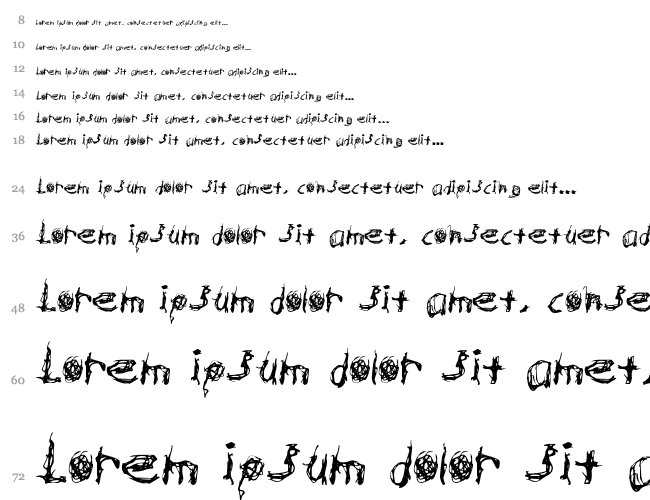 8 Lorem ipsum dolor sit amet, consectetuer adipiscing elit...
10 Lorem ipsum dolor sit amet, consectetuer adipiscing elit...
12 Lorem ipsum dolor sit amet, consectetuer adipiscing elit...
14 Lorem ipsum dolor sit amet, consectetuer adipiscing elit...
16 Lorem ipsum dolor sit amet, consectetuer adipiscing elit...
18 Lorem ipsum dolor sit amet, consectetuer adipiscing elit...
24 Lorem ipsum dolor sit amet, consectetuer adipiscing elit...
36 Lorem ipsum dolor sit amet, consectetuer ad
48 Lorem ipsum dolor sit amet, conse
60 Lorem ipsum dolor sit amet,
72 Lorem ipsum dolor sit a